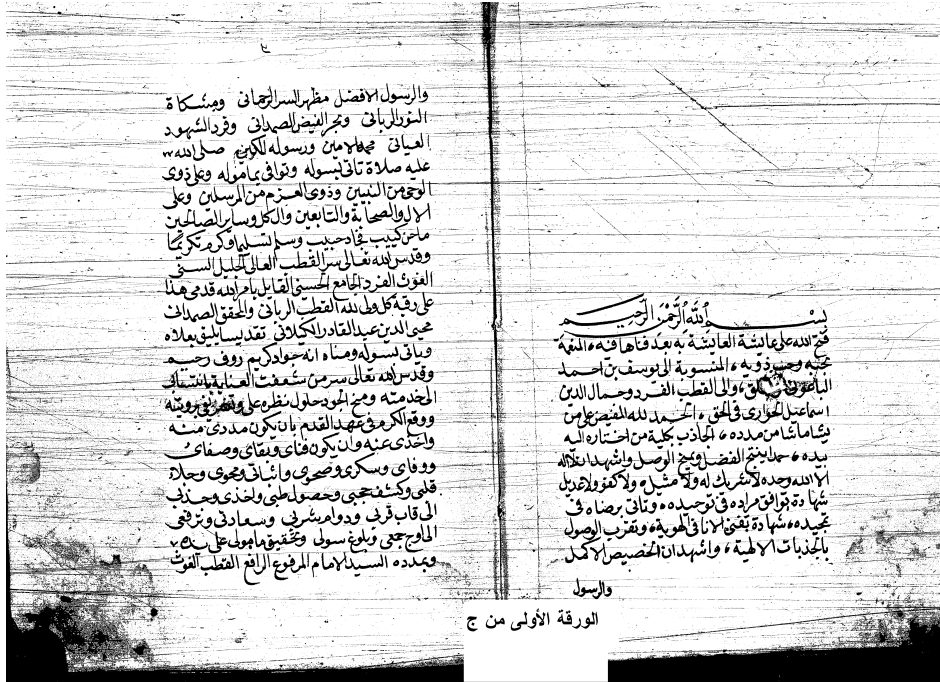 بسم الله الرحمن الرحيم
فتح الله على عايشة العايشة به بعد فناها فيه، المنعمة
بحبه وحب ذويه، المنسوبة الى يوسف بن احمد
الباعوني والى القطب الفرد وجمال الدين
اسماعيل الحواري في الحق، الحمد لله المفيض على من
يشا ما شا من مدده، الجاذب بكلية من اختاره اليه
بيده، حمدا ينتج الفضل وينيح الوصل واشهد ان لا اله
الا الله وحده لا شريك له ولا مثيل ولا كفو ولا عديل
شهادة توافق مراده في توحيده، وتاتي برضاه في
تمجيده، شهادة تفني الانا في الهوية، وتقرب الوصول
بالجذبات الالهية، واشهد ان التخصيص الاكمل
والرسول
٢
والرسول الافضل مظهر السر الرحماني ومشكاة
النور الرباني وبحر الفيض الصمداني وفرد الشهود
العياني محمد الامين ورسوله المكين صلى الله
عليه صلاة تاتي بسوله وتوافي بماموله وعلى ذوي
الوحي من النبيين وذوي العزم من المرسلين وعلى
الال والصحابة والتابعين والكل وساير الصالحين
ما حن كييب فجاد حبيب وسلم تسليما وكرم تكريما
وقدس الله تعالى سر القطب العالي الجليل السني
الغوث الفرد الجامع الحسني القايل بامر الله قدمي هذا
على رقبة كل ولي لله القطب الرباني والمحقق الصمداني
محيي الدين عبد القادر الكيلاني تقديسا يليق بعلاه
وياتي بسوله ومناه انه جواد كريم روف رحيم
وقدس الله تعالى سر من شعفت العناية بانتسابي
الى خدمته ومنح الجود حلول نظره علي وتصرفي برويته
ووقع الكرم في عهد القدم بان يكون مددي منه
واخذي عنه وان يكون فناي وبقاي وصفاي
ووفاي وسكري وصحوي واثباتي ومحوي وجلاء
قلبي وكشف حجبي وحصول طبي واخذي وجذبي
الى قاب قربي ودوام شربي وسعادتي وترقعي
الى اوج جمعي وبلوغ سولي وتحقيق مامولي على يده
وبمدده السيد الامام المرفوع الرافع القطب الغوث
الورقة الأولى من ج